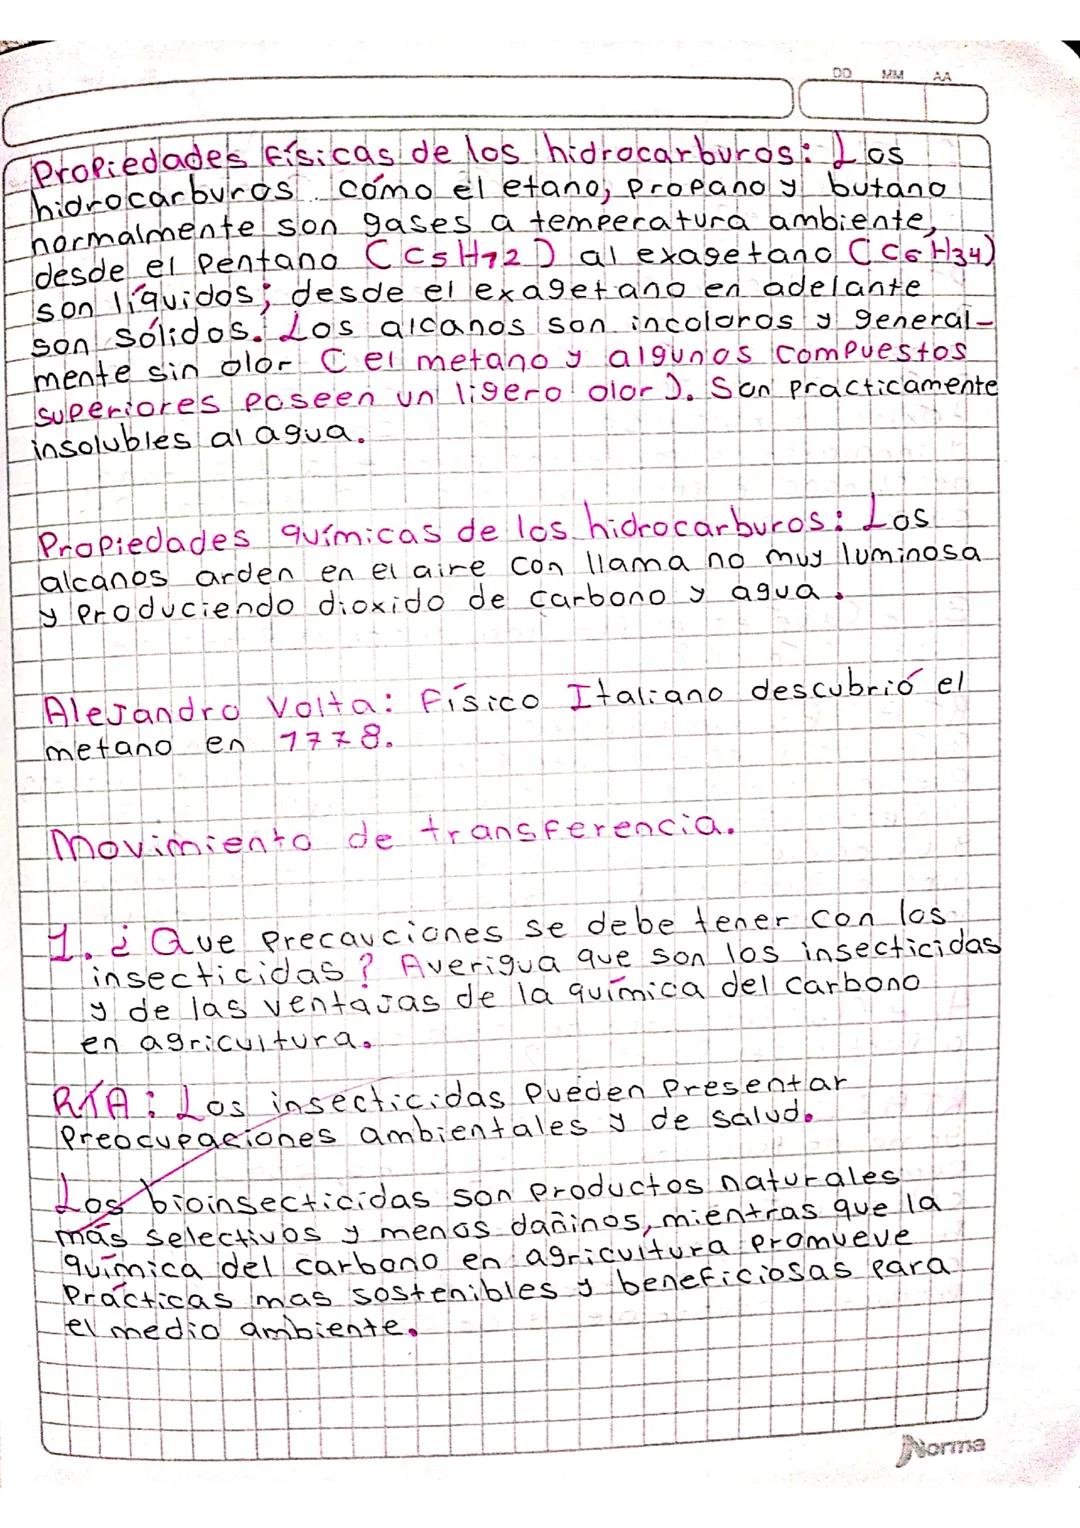 DD MM AA
Propiedades físicas de los hidrocarburos: Los
hidrocarburos como el etano, propano y butano
normalmente son gases a temperatura ambiente,
desde el pentano (C5H12) al exagetano (C6H34)
son líquidos; desde el exagetano en adelante
son sólidos. Los alcanos son incoloros y general-
mente sin olor (el metano y algunos compuestos
superiores poseen un ligero olor). Son practicamente
insolubles al agua.
Propiedades químicas de los hidrocarburos: Los
alcanos arden en el aire con llama no muy luminosa
y produciendo dioxido de carbono y agua.
Alejandro Volta: Físico Italiano descubrió el
metano en 1778.
Movimiento de transferencia.
1. ¿Que precauciones se debe tener con los
insecticidas? Averigua que son los insecticidas
y de las ventajas de la química del carbono
en agricultura.
RTA: Los insecticidas pueden presentar
preocupaciones ambientales y de salud.
Los bioinsecticidas son productos naturales
más selectivos y menos dañinos, mientras que la
química del carbono en agricultura promueve
Prácticas mas sostenibles y beneficiosas para
el medio ambiente.
Norma